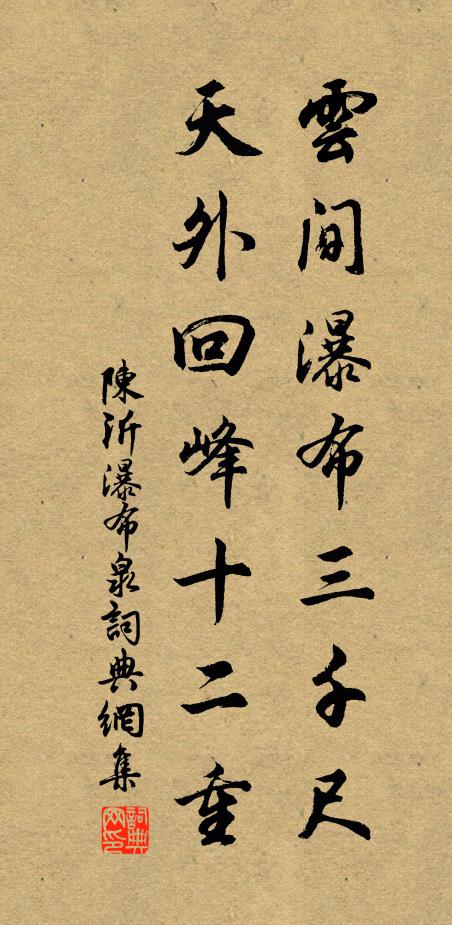 雲間瀑布三千尺
天外回峰十二重
陳沂瀑布泉詞典網集
詞典網印